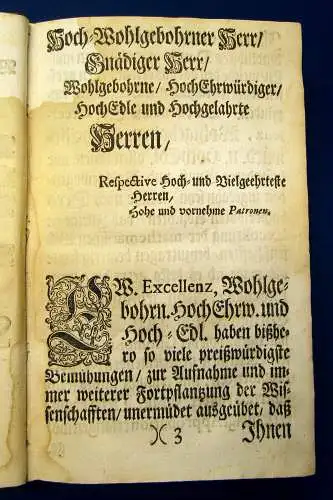 Hoch-Wohlgebohrner Herr/
Gnädiger Herr/
Wohlgebohrne/ HochEhrwürdiger/
HochEdle und Hochgelahrte
Herren,
Respective Hoch- und Vielgeehrteste
Herren,
Hohe und vornehme Patronen,
EW. Excellenz, Wohlge-
bohrn. HochEhrw. und
Hoch-Edl. haben bißhe-
ro so viele preißwürdigste
Bemühungen/ zur Aufnahme und im-
mer weiterer Fortpflantzung der Wis-
senschafften/ unermüdet ausgeübet/ daß
)( 3
Ihnen